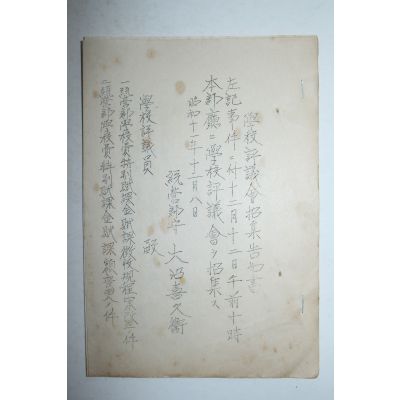 學校評議會招集告知書
左記事件ニ付十二月十二日午前十時
本郡廳ニ學校評議會ヲ招集ス
昭和十一年十二月八日
統營郡守 大
學校評議員 殿
一統營郡學校費特別賦課金賦課徵收規程 件
二統營郡學校費特別賦課金賦課額 件